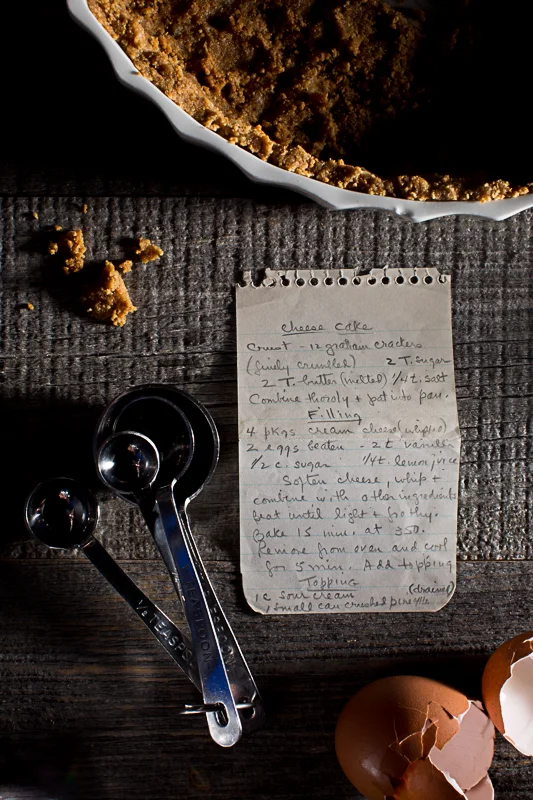 Cheese Cake
Crust - 12 graham crackers
(finely crumbled) 2 T. sugar
2 T. butter (melted) 1/4 t. salt
Combine thoroly + pat into pan.
Filling
4 pkgs cream cheese (whipped)
2 eggs beaten - 2 t vanilla
1/2 c. sugar 1/4 t. lemon juice
Soften cheese, whip +
combine with other ingredients
beat until light + frothy.
Bake 15 min. at 350.
Remove from oven and cool
for 5 min. Add topping
Topping
1 c sour cream (drained)
1 small can crushed
1/2 TEASPOON
TEASPOON